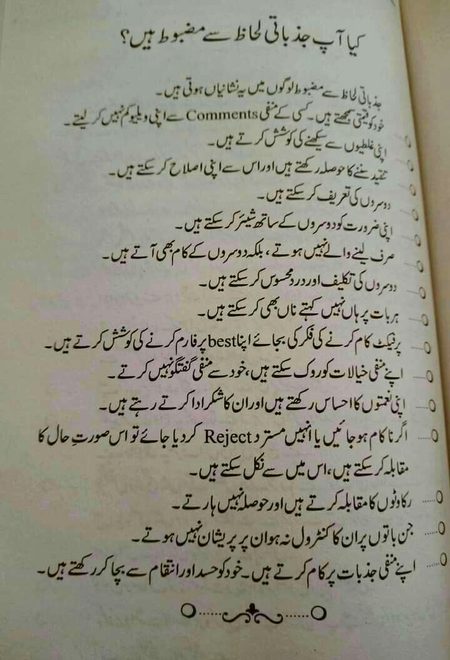 کیا آپ جذباتی لحاظ سے مضبوط ہیں؟
جذباتی لحاظ سے مضبوط لوگوں میں یہ نشانیاں ہوتی ہیں۔
خود کو قیمتی سمجھتے ہیں۔ کسی کے منفی Comments سے اپنی ویلیو کم نہیں کر لیتے۔
اپنی غلطیوں سے سیکھنے کی کوشش کرتے ہیں۔
تنقید سننے کا حوصلہ رکھتے ہیں اور اس سے اپنی اصلاح کر سکتے ہیں۔
دوسروں کی تعریف کر سکتے ہیں۔
اپنی ضرورت کو دوسروں کے ساتھ شیئر کر سکتے ہیں۔
صرف لینے والے نہیں ہوتے، بلکہ دوسروں کے کام بھی آتے ہیں۔
دوسروں کی تکلیف اور درد محسوس کر سکتے ہیں۔
ہر بات پر ہاں نہیں کہتے ناں بھی کر سکتے ہیں۔
پرفیکٹ کام کرنے کی فکر کی بجائے اپنا best پرفارم کرنے کی کوشش کرتے ہیں۔
اپنے منفی خیالات کو روک سکتے ہیں، خود سے منفی گفتگو نہیں کرتے۔
اپنی نعمتوں کا احساس رکھتے ہیں اور ان کا شکر ادا کرتے رہتے ہیں۔
اگر ناکام ہو جائیں یا انہیں مسترد Reject کر دیا جائے تو اس صورتِ حال کا
مقابلہ کر سکتے ہیں، اس میں سے نکل سکتے ہیں۔
رکاوٹوں کا مقابلہ کرتے ہیں اور حوصلہ نہیں ہارتے۔
جن باتوں پر ان کا کنٹرول نہ ہو ان پر پریشان نہیں ہوتے۔
اپنے منفی جذبات پر کام کرتے ہیں۔ خود کو حسد اور انتقام سے بچا کر رکھتے ہیں۔